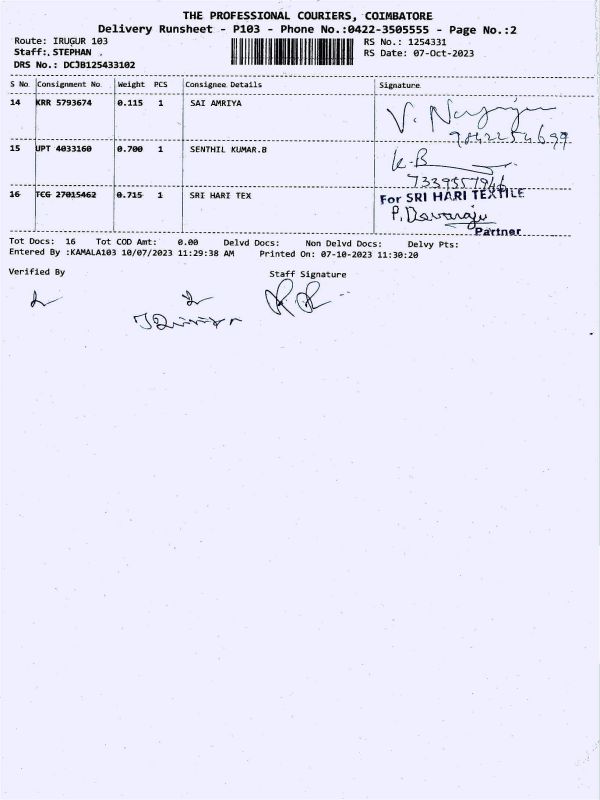 THE PROFESSIONAL COURIERS, COIMBATORE
Delivery Runsheet - P103 - Phone No.:0422-3505555 - Page No.:2
Route: IRUGUR 103 RS No.: 1254331
Staff:. STEPHAN . RS Date: 07-Oct-2023
DRS No.: DCJB125433102
S No Consignment No Weight PCS Consignee Details Signature
14 KRR 5793674 0.115 1 SAI AMRIYA
15 UPT 4033160 0.700 1 SENTHIL KUMAR.B K-B
16 TCG 27015462 0.715 1 SRI HARI TEX For SRI HARI TEXTILE
P. Devaraju
Partner
Tot Docs: 16 Tot COD Amt: 0.00 Delvd Docs: Non Delvd Docs: Delvy Pts:
Entered By :KAMALA103 10/07/2023 11:29:38 AM Printed On: 07-10-2023 11:30:20
Verified By Staff Signature